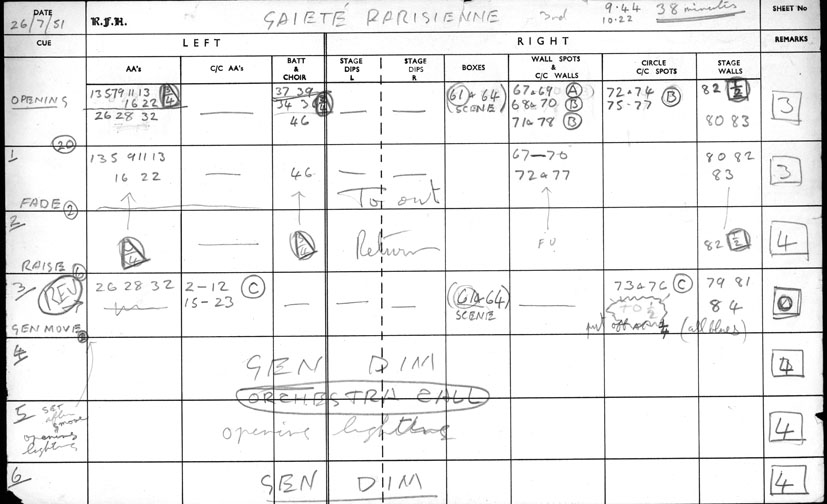 DATE
26/7/51
R.J.H.
GAIETÉ PARISIENNE
3rd
9.44
10.22
38 minutes
SHEET No
CUE
LEFT
RIGHT
REMARKS
AA's
C/C AA's
BATT & CHOIR
STAGE DIPS L
STAGE DIPS R
BOXES
WALL SPOTS & C/C WALLS
CIRCLE C/C SPOTS
STAGE WALLS
OPENING
1 3 5 7 9 11 13
16 22 3/4
26 28 32
37 39
34 36 3/4
46
(61 & 64)
SCENE
67 & 69 A
68 & 70 B
71 & 78 B
72 & 74
75-77 B
82 1/2
80 83
3
1
20
13 5 9 11 13
16 22
46
67-70
72 & 77
80 82
83
3
FADE 2
To out
2
3/4
3/4
Return
F U
82 1/2
4
RAISE
3
REV
26 28 32
2-12 C
15-23
(61 & 64)
SCENE
73 & 76 C
TO 1/2
79 81
84
GEN MOVE
put off
(all blues)
4
GEN DIM
4
ORCHESTRA CALL
5
SET
opening
lighting
opening lighting
4
6
GEN DIM
4